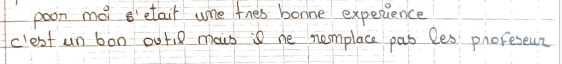 poor moi s'etait une tres bonne experience
c'est un bon outil mais il ne remplace pas les profeseur